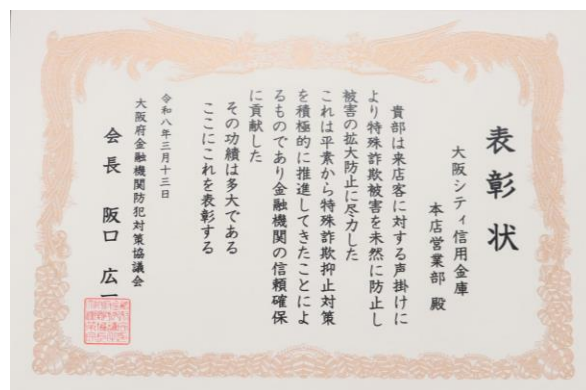 表彰状
大阪シティ信用金庫
本店営業部 殿
貴部は来店客に対する声掛けに
より特殊詐欺被害を未然に防止し
被害の拡大防止に尽力した
これは平素から特殊詐欺抑止対策
を積極的に推進してきたことによ
るものであり金融機関の信頼確保
に貢献した
その功績は多大である
ここにこれを表彰する
令和八年三月十三日
大阪府金融機関防犯対策協議会
会長 阪口 広一